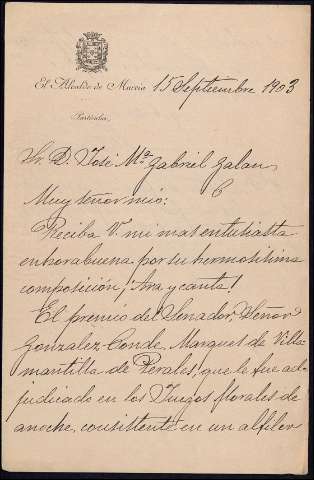 El Alcalde de Murcia 15 Septiembre 1903
Particular
Sr. D. José Mª Gabriel Galan
Muy señor mio:
Reciba V. mi mas entusiasta
enhorabuena por su hermosisima
composición ¡Ara y canta!
El premio del Senador, Señor
Gonzalez-Conde, Marques de Villa-
mantilla de Perales, que le fue ad-
judicado en los Juegos florales de
anoche, consistente en un alfiler